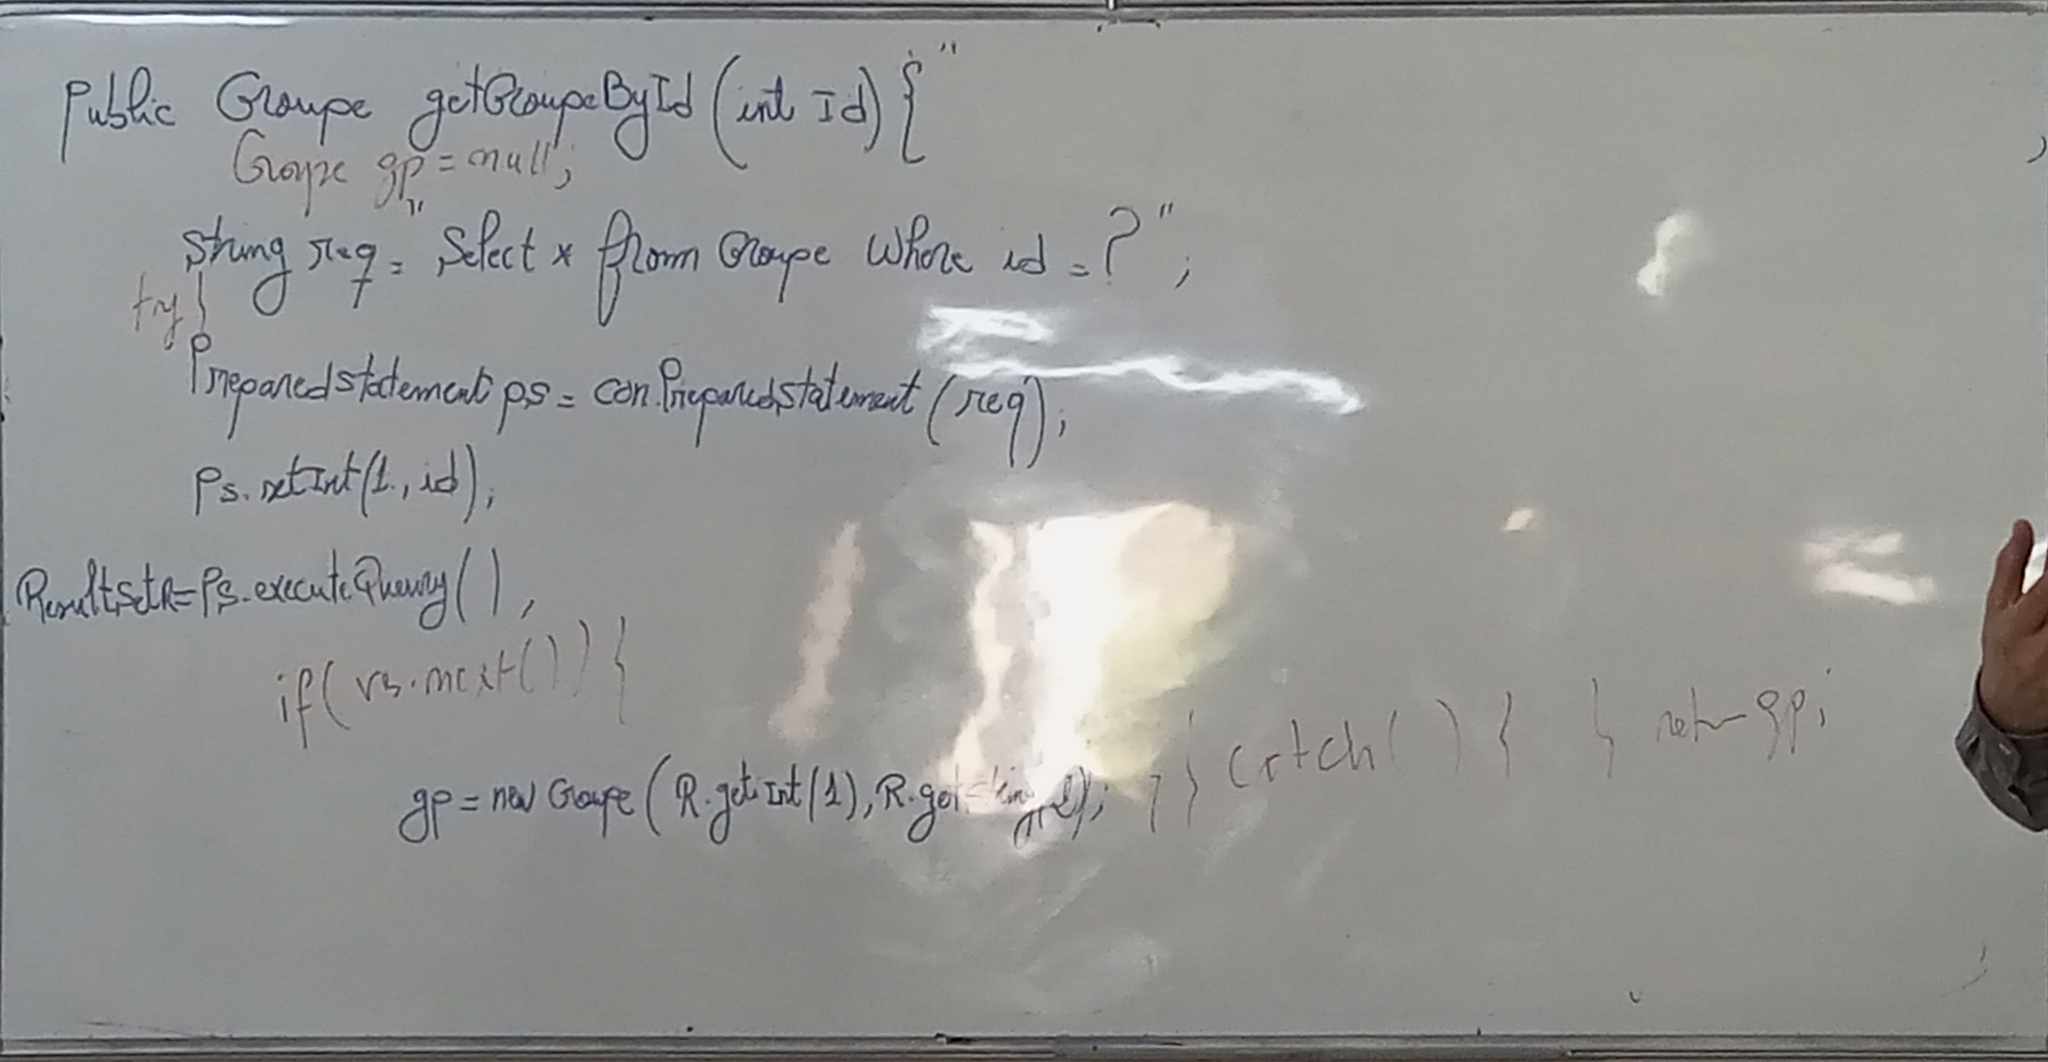 Public Groupe getGroupeById (int Id) {
Groupe gp = null;
String req = "Select * from Groupe Where id = ?";
try {
Preparedstatement ps = con.Preparedstatement (req);
Ps.setInt(1, id);
ResultsetR=Ps.executeQuerry();
if( rs.next()) {
gp = new Groupe ( R.getInt(1), R.getString(2)); } } catch( ) { } return gp;